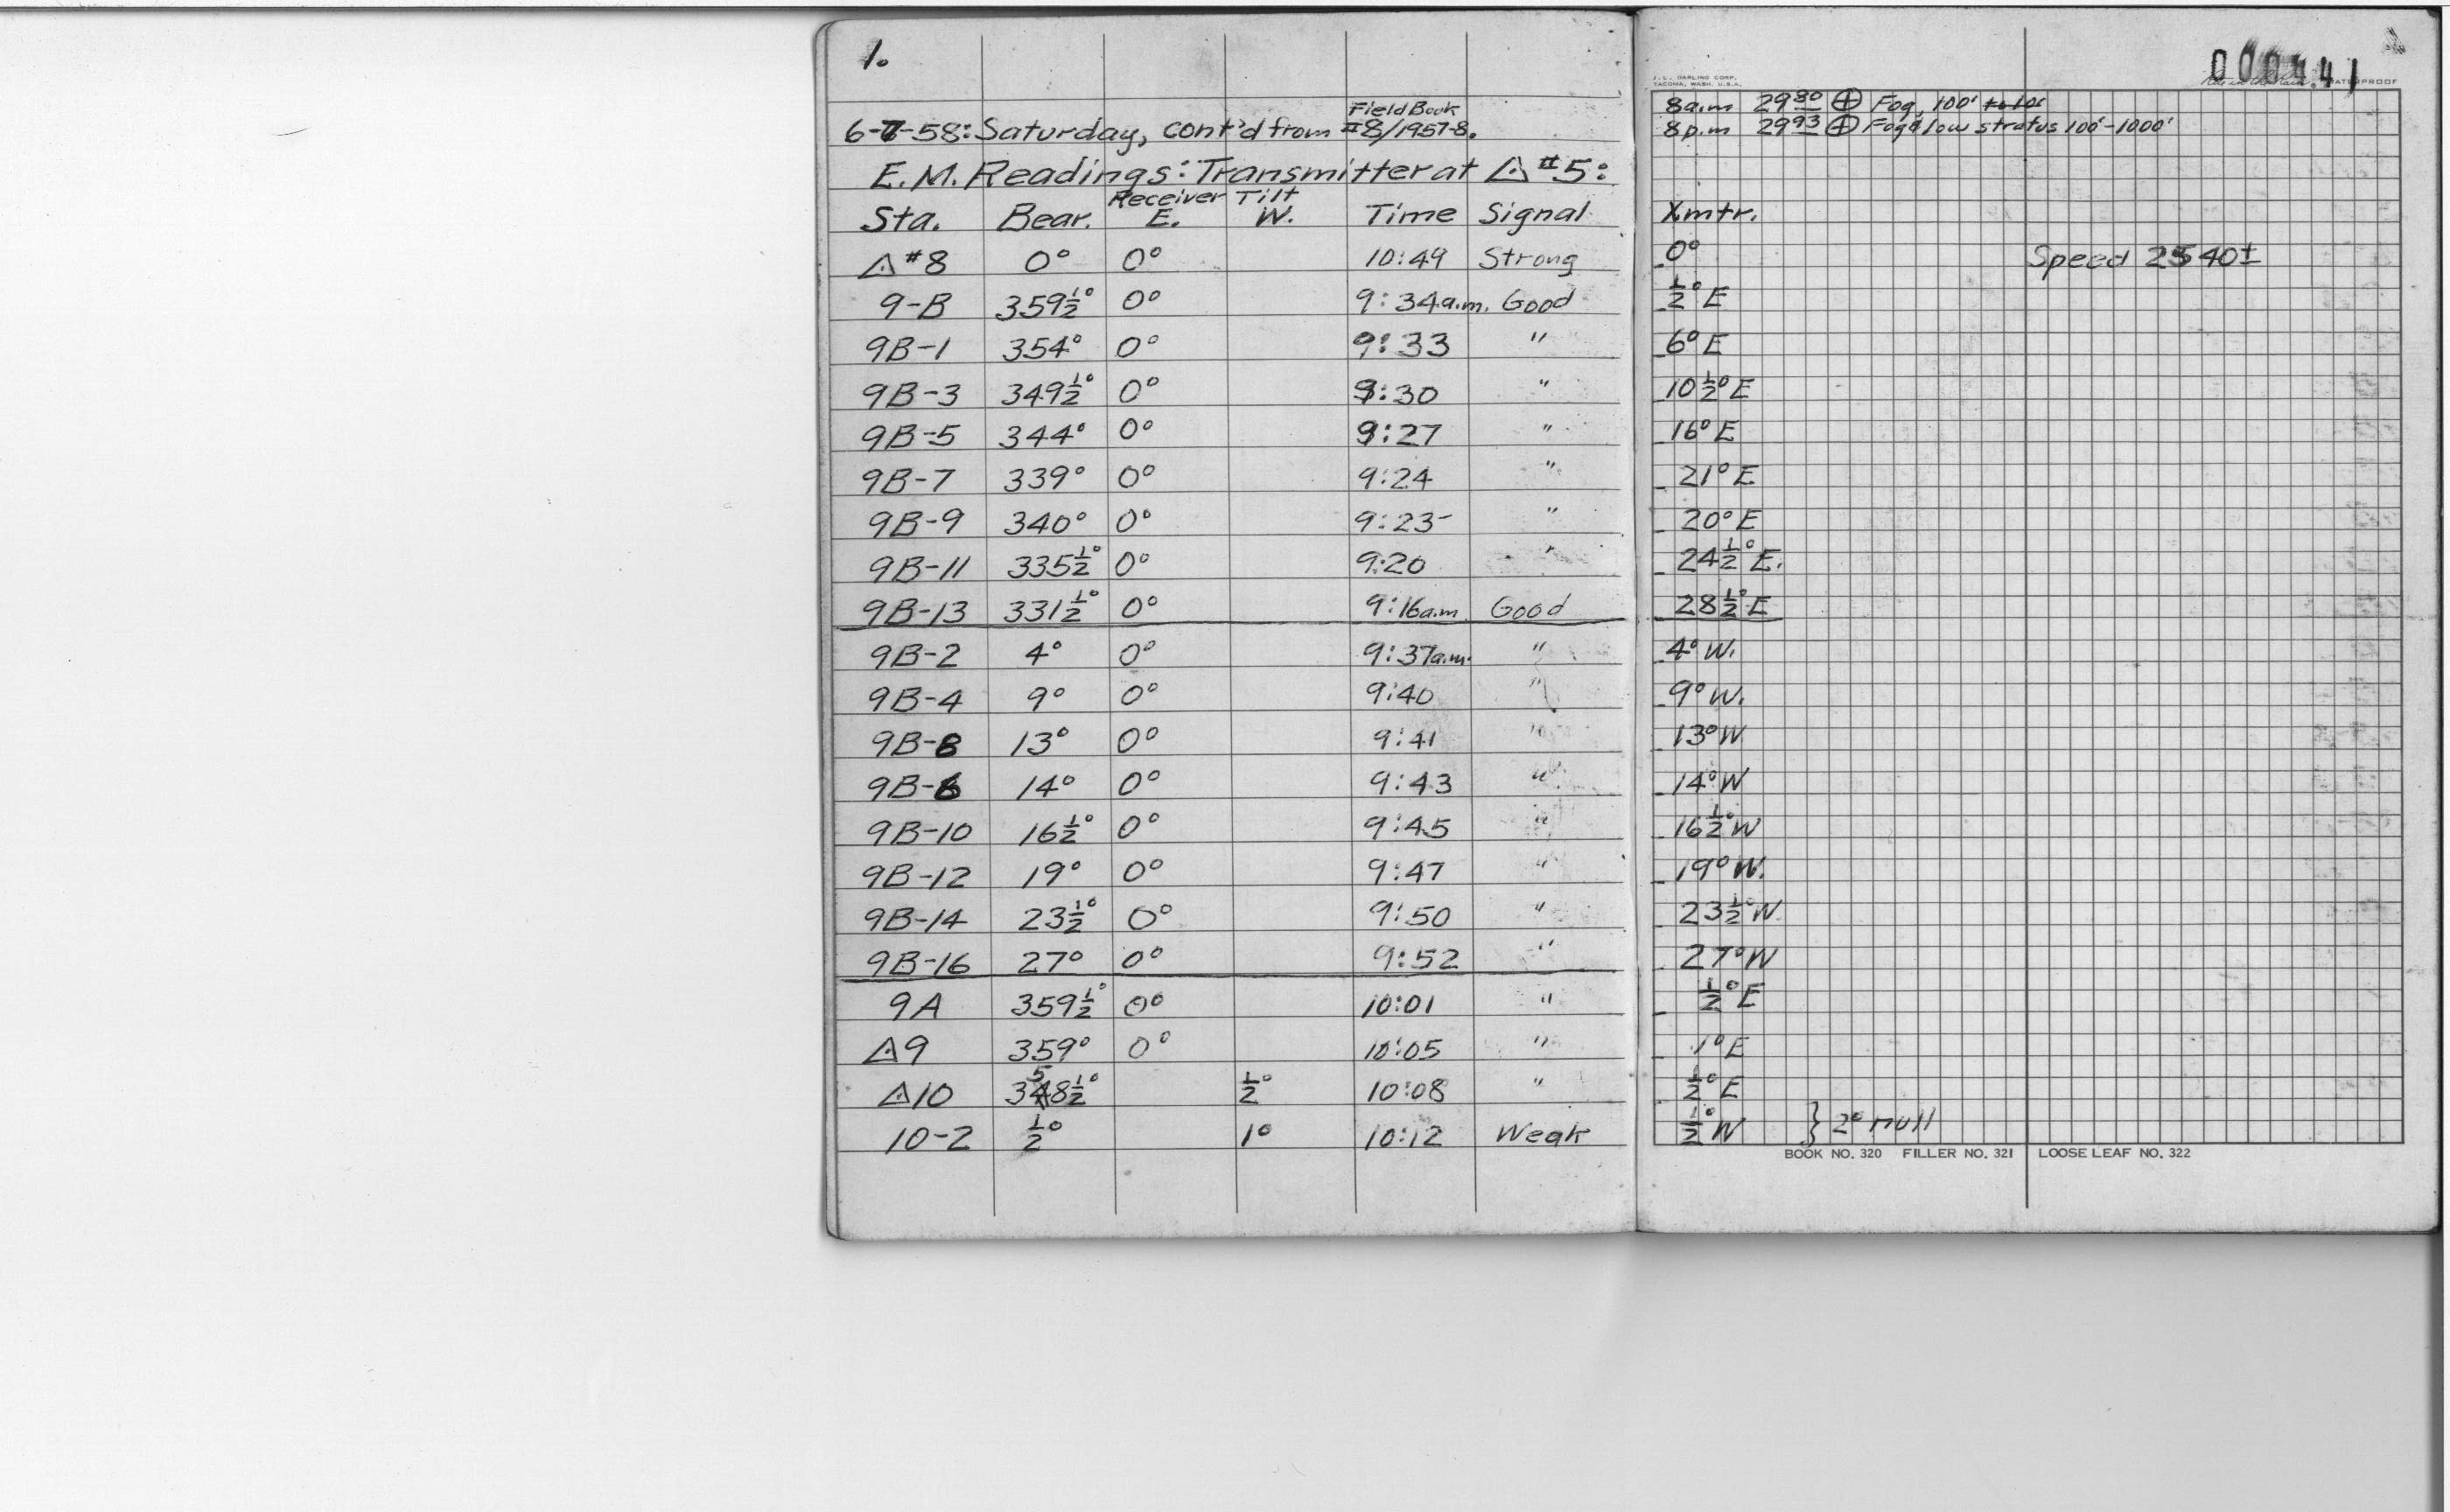 1.
Field Book
6-7-58: Saturday, cont'd from #8/1957-8.
E.M. Readings: Transmitter at △ #5:
Receiver Tilt
Sta. Bear. E. W. Time Signal
△ #8 0° 0° 10:49 Strong
9-B 359½° 0° 9:34 a.m. Good
9B-1 354° 0° 9:33 "
9B-3 349½° 0° 9:30 "
9B-5 344° 0° 9:27 "
9B-7 339° 0° 9:24 "
9B-9 340° 0° 9:23 "
9B-11 335½° 0° 9:20 "
9B-13 331½° 0° 9:16 a.m. Good
9B-2 4° 0° 9:37 a.m. "
9B-4 9° 0° 9:40 "
9B-8 13° 0° 9:41 "
9B-6 14° 0° 9:43 "
9B-10 16½° 0° 9:45 "
9B-12 19° 0° 9:47 "
9B-14 23½° 0° 9:50 "
9B-16 27° 0° 9:52 "
9A 359½° 0° 10:01 "
△9 359° 0° 10:05 "
△10 358½° ½° 10:08 "
10-2 ½° 1° 10:12 Weak
J. L. DARLING CORP.
TACOMA, WASH. U.S.A.
000441
8 a.m 29 80 ⊕ Fog, 100'
8 p.m 29 93 ⊕ Fog & low stratus 100'-1000'
Xmtr.
0° Speed 2540±
½° E
6° E
10½° E
16° E
21° E
20° E
24½° E.
28½° E
4° W.
9° W.
13° W
14° W
16½° W
19° W.
23½° W
27° W
½° E
1° E
½° E
½° W } 2° null
BOOK NO. 320 FILLER NO. 321 LOOSE LEAF NO. 322